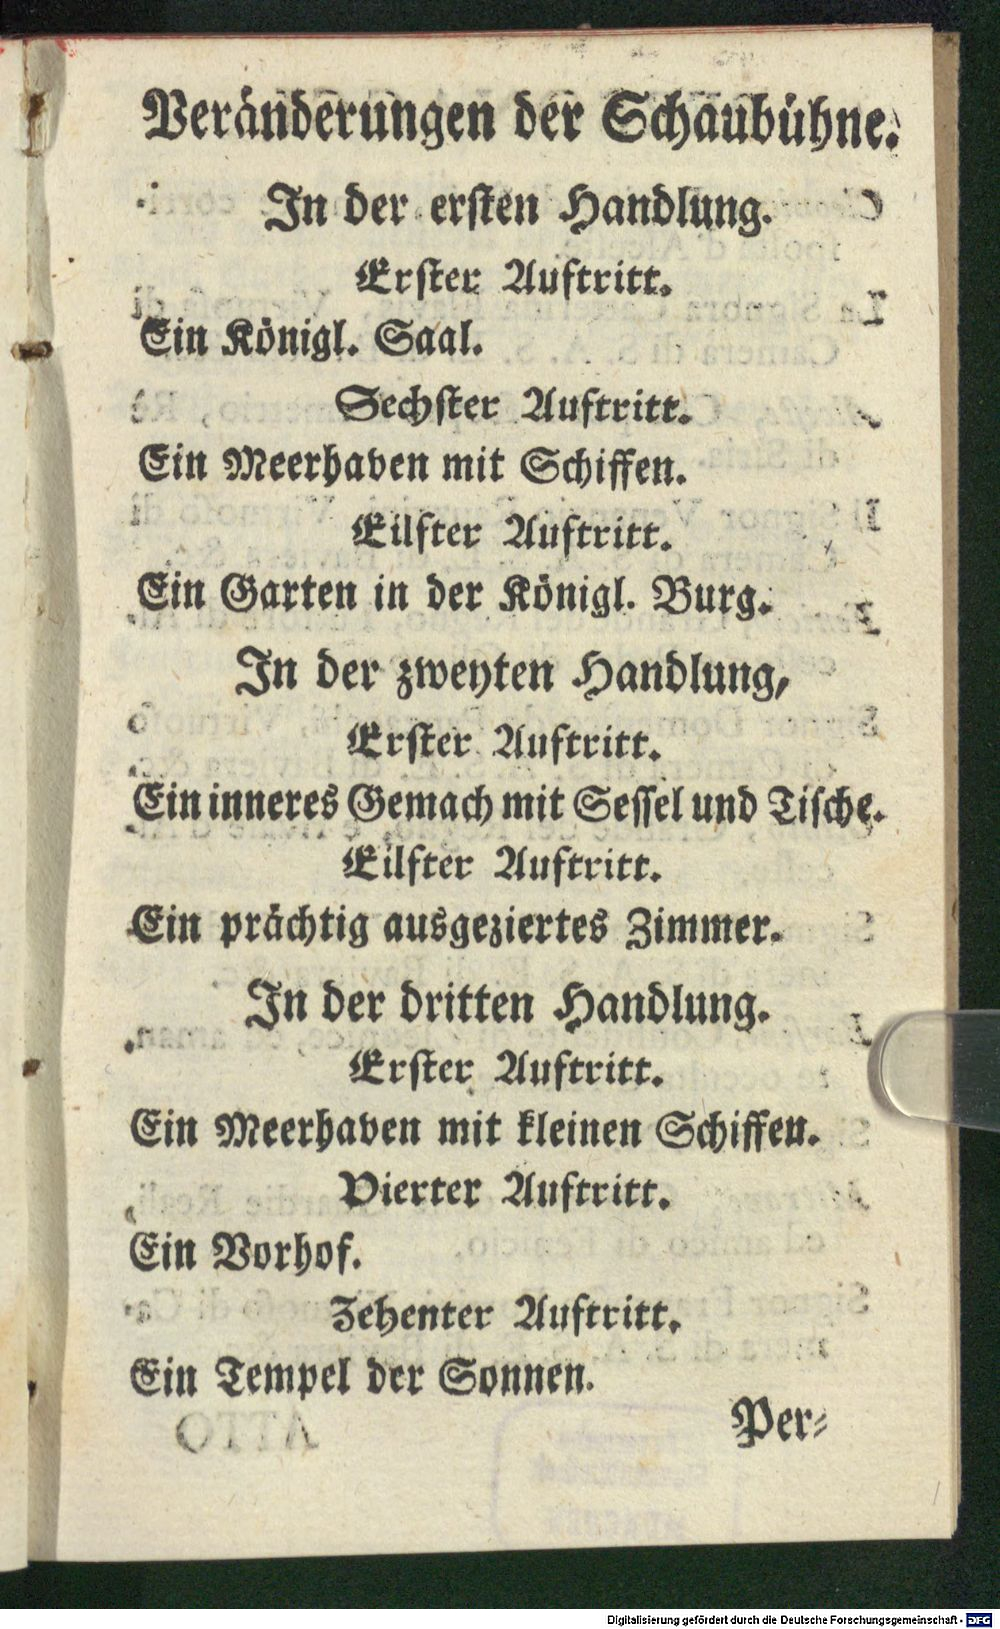 Veränderungen der Schaubühne.
In der ersten Handlung.
Erster Auftritt.
Ein Königl. Saal.
Sechster Auftritt.
Ein Meerhaven mit Schiffen.
Eilfter Auftritt.
Ein Garten in der Königl. Burg.
In der zweyten Handlung,
Erster Auftritt.
Ein inneres Gemach mit Sessel und Tische.
Eilfter Auftritt.
Ein prächtig ausgeziertes Zimmer.
In der dritten Handlung.
Erster Auftritt.
Ein Meerhaven mit kleinen Schiffen.
Vierter Auftritt.
Ein Vorhof.
Zehenter Auftritt.
Ein Tempel der Sonnen.
Per-
Digitalisierung gefördert durch die Deutsche Forschungsgemeinschaft - DFG